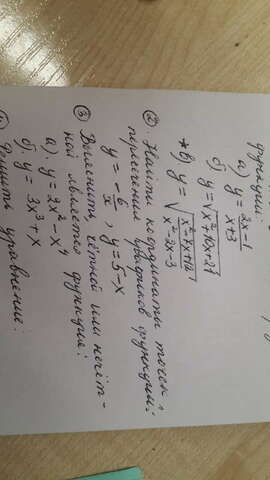 функции:
а) y = 2x-1 / x+3
б) y = √x²+10x+21
*в) y = √x²-7x+12 / x²-2x-3
② Найти координаты точек
пересечения графиков функций:
y = -6/x, y = 5-x
③ Выяснить, чётной или нечёт-
ной является функция:
а) y = 2x²-x⁴
б) y = 3x³+x
Решить уравнение: